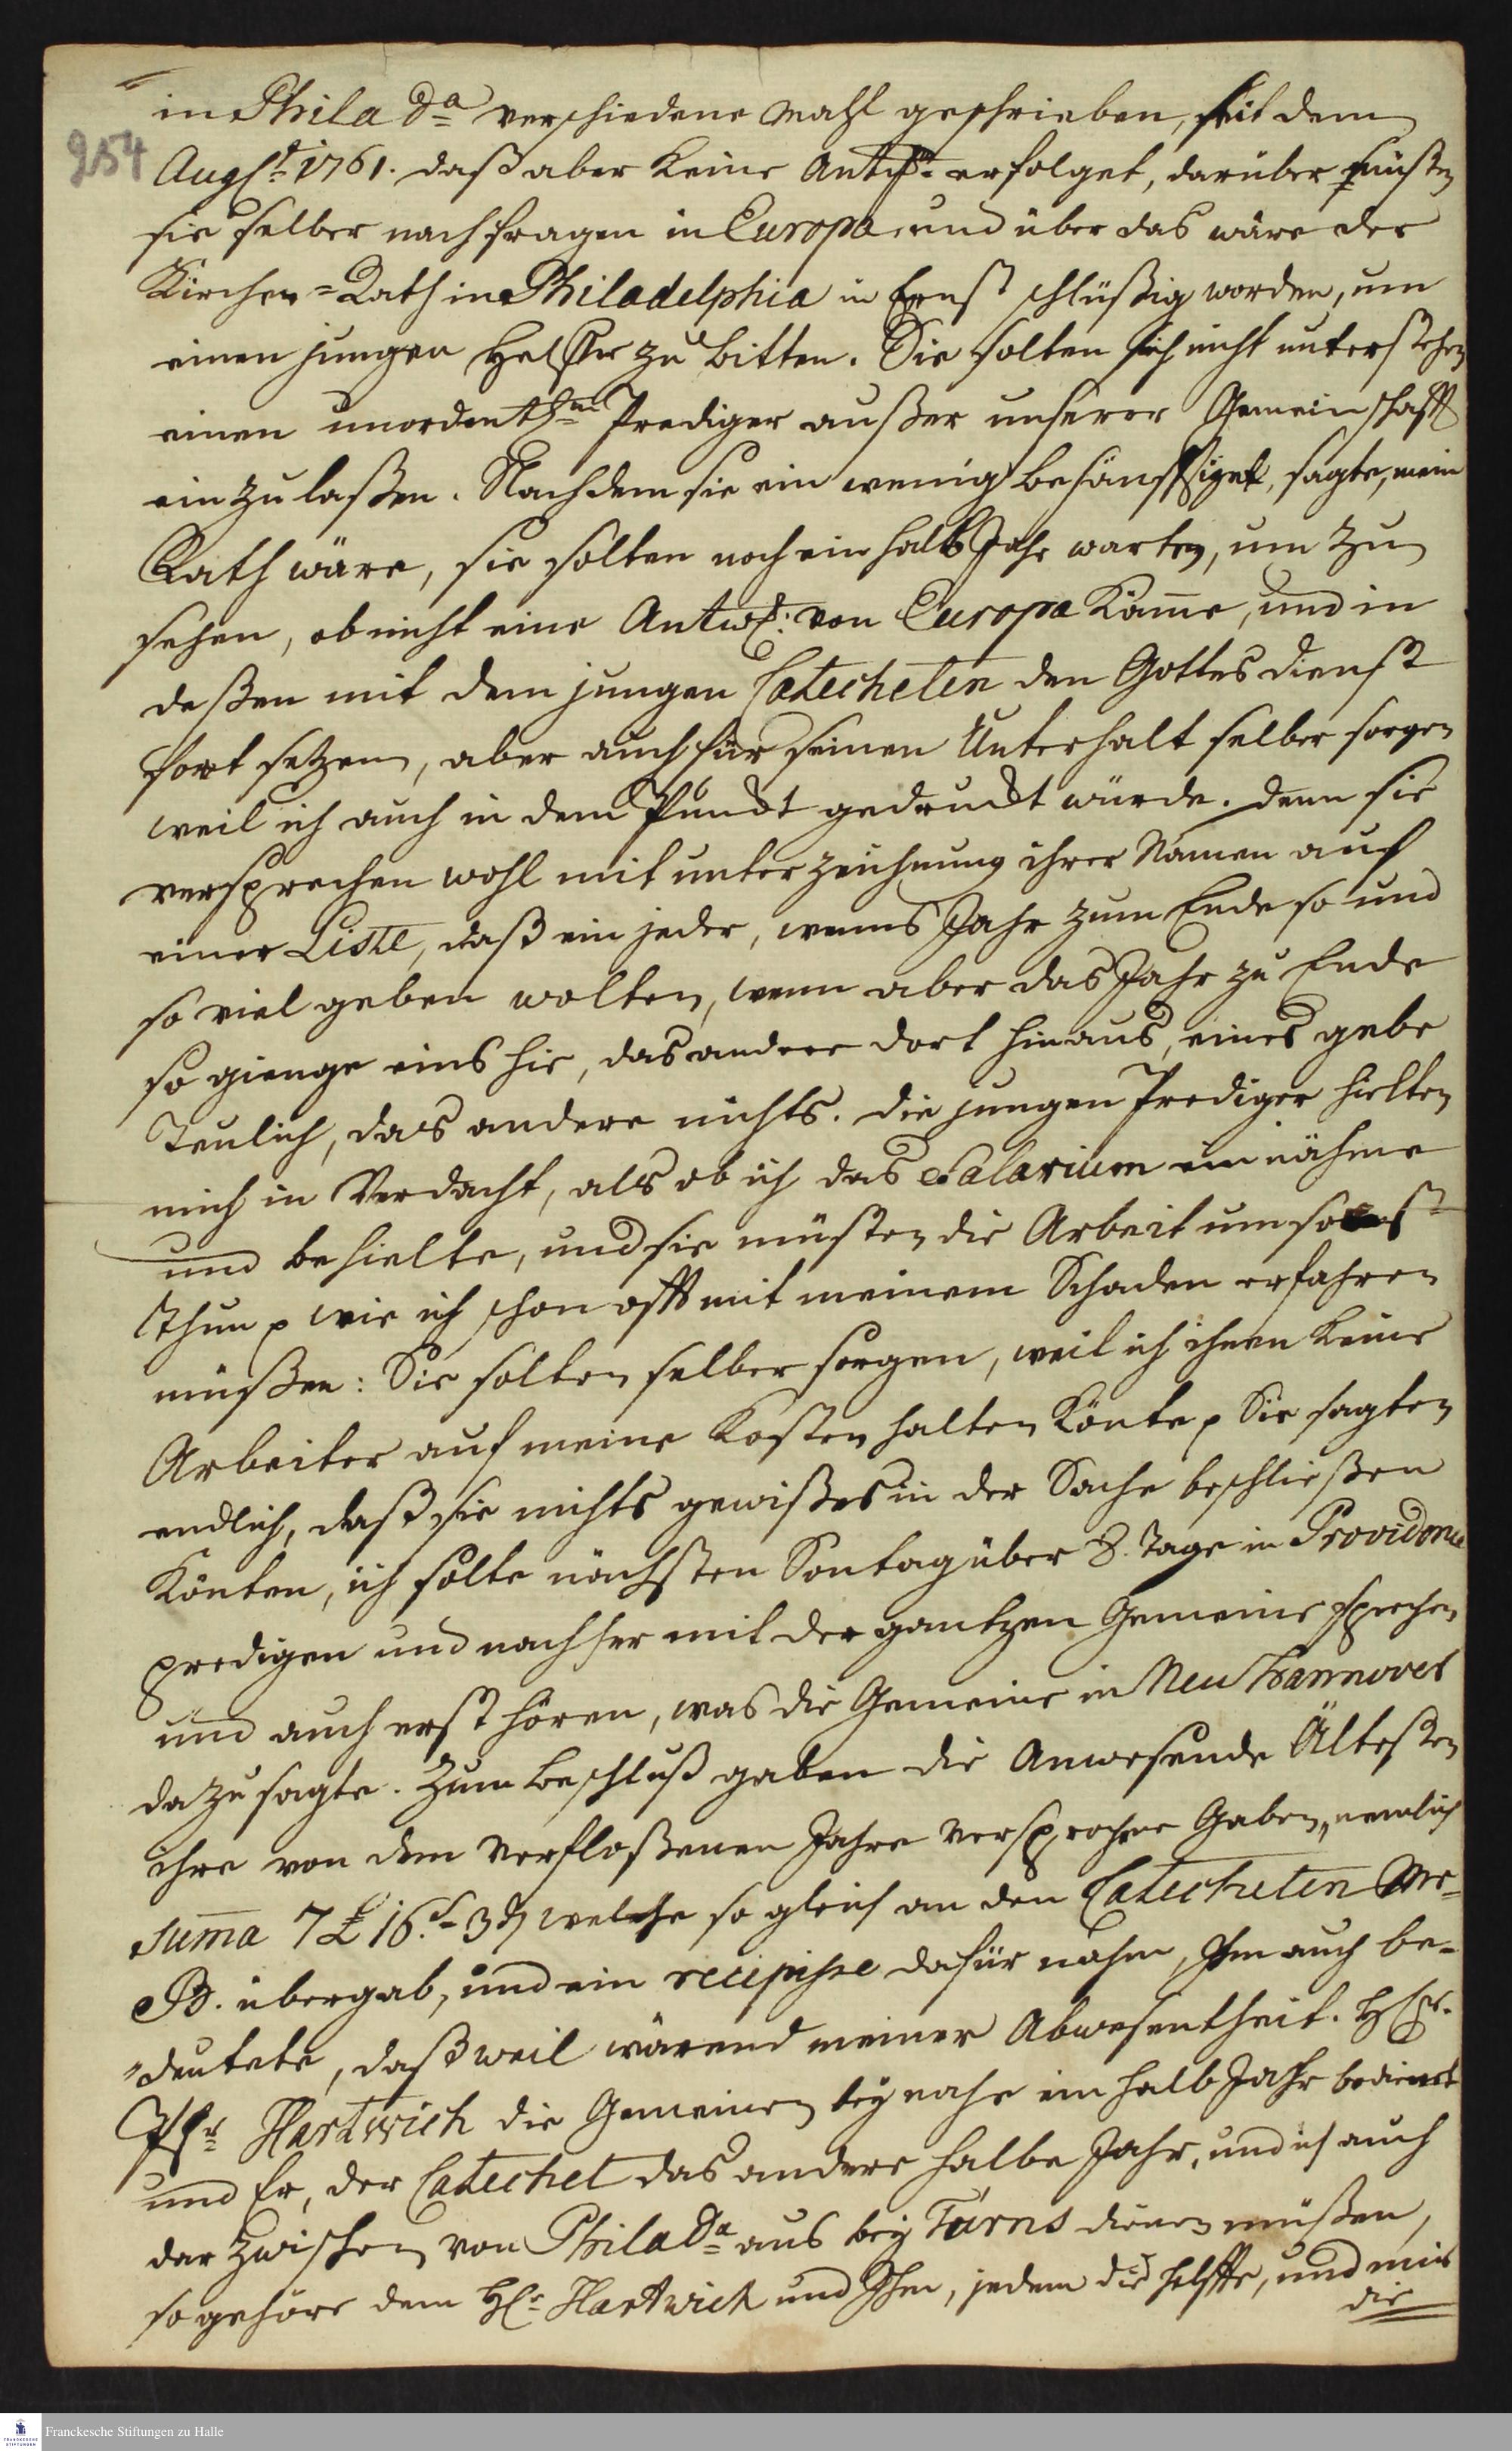 in Philada verschiedene mahl geschrieben, seit dem
254
Augst 1761. daß aber keine Antw: erfolget, darüber müsten
sie selber nachfragen in Europa, und über das wäre der
Kirchen=Rath in Philadelphia in Ernst schlüßig worden, um
einen jungen Helffer zu bitten. Sie solten sich nicht unterstehen
einen unordentln Prediger außer unserer Gemeinschafft
ein zu laßen. Nachdem sie ein wenig besänfftiget, sagte, mein
Rath wäre, sie solten noch ein halb Jahr warten, um zu
sehen, ob nicht eine Antw: von Europa käme, und in
deßen mit dem jungen Catecheten den Gottesdienst
fort setzen, aber auch für seinen Unterhalt selber sorgen
weil ich auch in dem Punckt gedruckt würde. denn sie
versprechen wohl mit unterzeichnung ihrer Namen auf
einer Liste, daß ein jeder, wenns Jahr zum Ende so und
so viel geben wolten, wenn aber das Jahr zu Ende
so gienge eins hie, das andere dort hinaus, eines gebe
Treulich, das andere nichts. die jungen Prediger hielten
mich in Verdacht, als ob ich das Salarium einnähme
und behielte, und sie müsten die Arbeit umsonst
thun p wie ich schon offt mit meinem Schaden erfahren
müßen: Sie solten selber sorgen, weil ich ihnen keine
Arbeiter auf meine Kosten halten könte p Sie sagten
endlich, daß sie nichts gewißes in der Sache beschließen
könten, ich solte nächsten Sontag über 8. Tage in Providence
predigen und nachher mit der gantzen Gemeine sprechen
und auch erst hören, was die Gemeine in Neu Hannover
dazu sagte. Zum beschluß gaben die Anwesende Ältesten
ihre von dem verfloßenen Jahre versprochne Gaben, nemlich
Suma 7 £ 16.s 3 d welche so gleich an den Catecheten Mr=
B. übergab, und ein recipisse dafür nahm, Ihm auch be=
deutete, daß weil wärend meiner Abwesentheit. H
Pfr Hartwich die Gemeinen bey nahe ein halb Jahr bedienet
und Er, der Catechet das andere halbe Jahr, und ich auch
dar zwischen von Philada aus bey Turns dienen müßen,
so gehöre dem H Hartwich und Ihm, jedem die helffte, und mir
die
Franckesche Stiftungen zu Halle